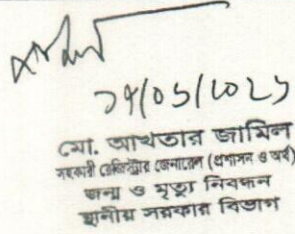 মো. আখতার জামিল
সহকারী রেজিস্ট্রার জেনারেল (প্রশাসন ও অর্থ)
জন্ম ও মৃত্যু নিবন্ধন
স্থানীয় সরকার বিভাগ